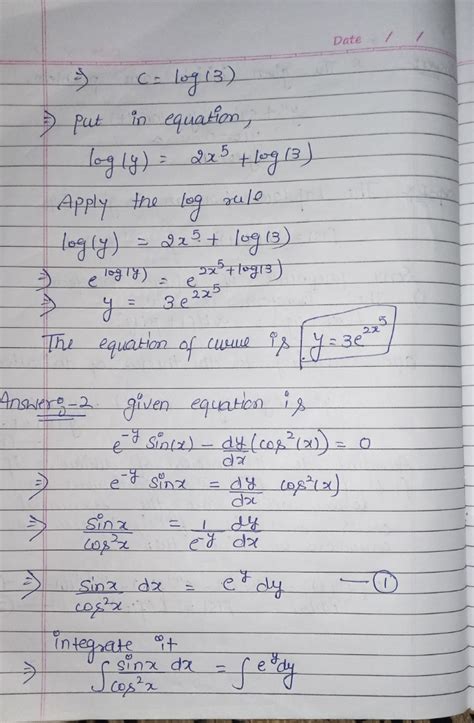 Date / /
⇒ C = log(3)
⇒ put in equation,
log(y) = 2x⁵ + log(3)
Apply the log rule
log(y) = 2x⁵ + log(3)
⇒ e^log(y) = e^2x⁵+log(3)
⇒ y = 3e^2x⁵
The equation of curve is y = 3e^2x⁵
Answer-2 given equation is
e^-y Sin(x) - dy/dx (cos²(x)) = 0
⇒ e^-y Sinx = dy/dx cos²(x)
⇒ Sinx/cos²x = 1/e^-y dy/dx
⇒ Sinx/cos²x dx = e^y dy — ①
integrate it
⇒ ∫ Sinx/cos²x dx = ∫ e^y dy